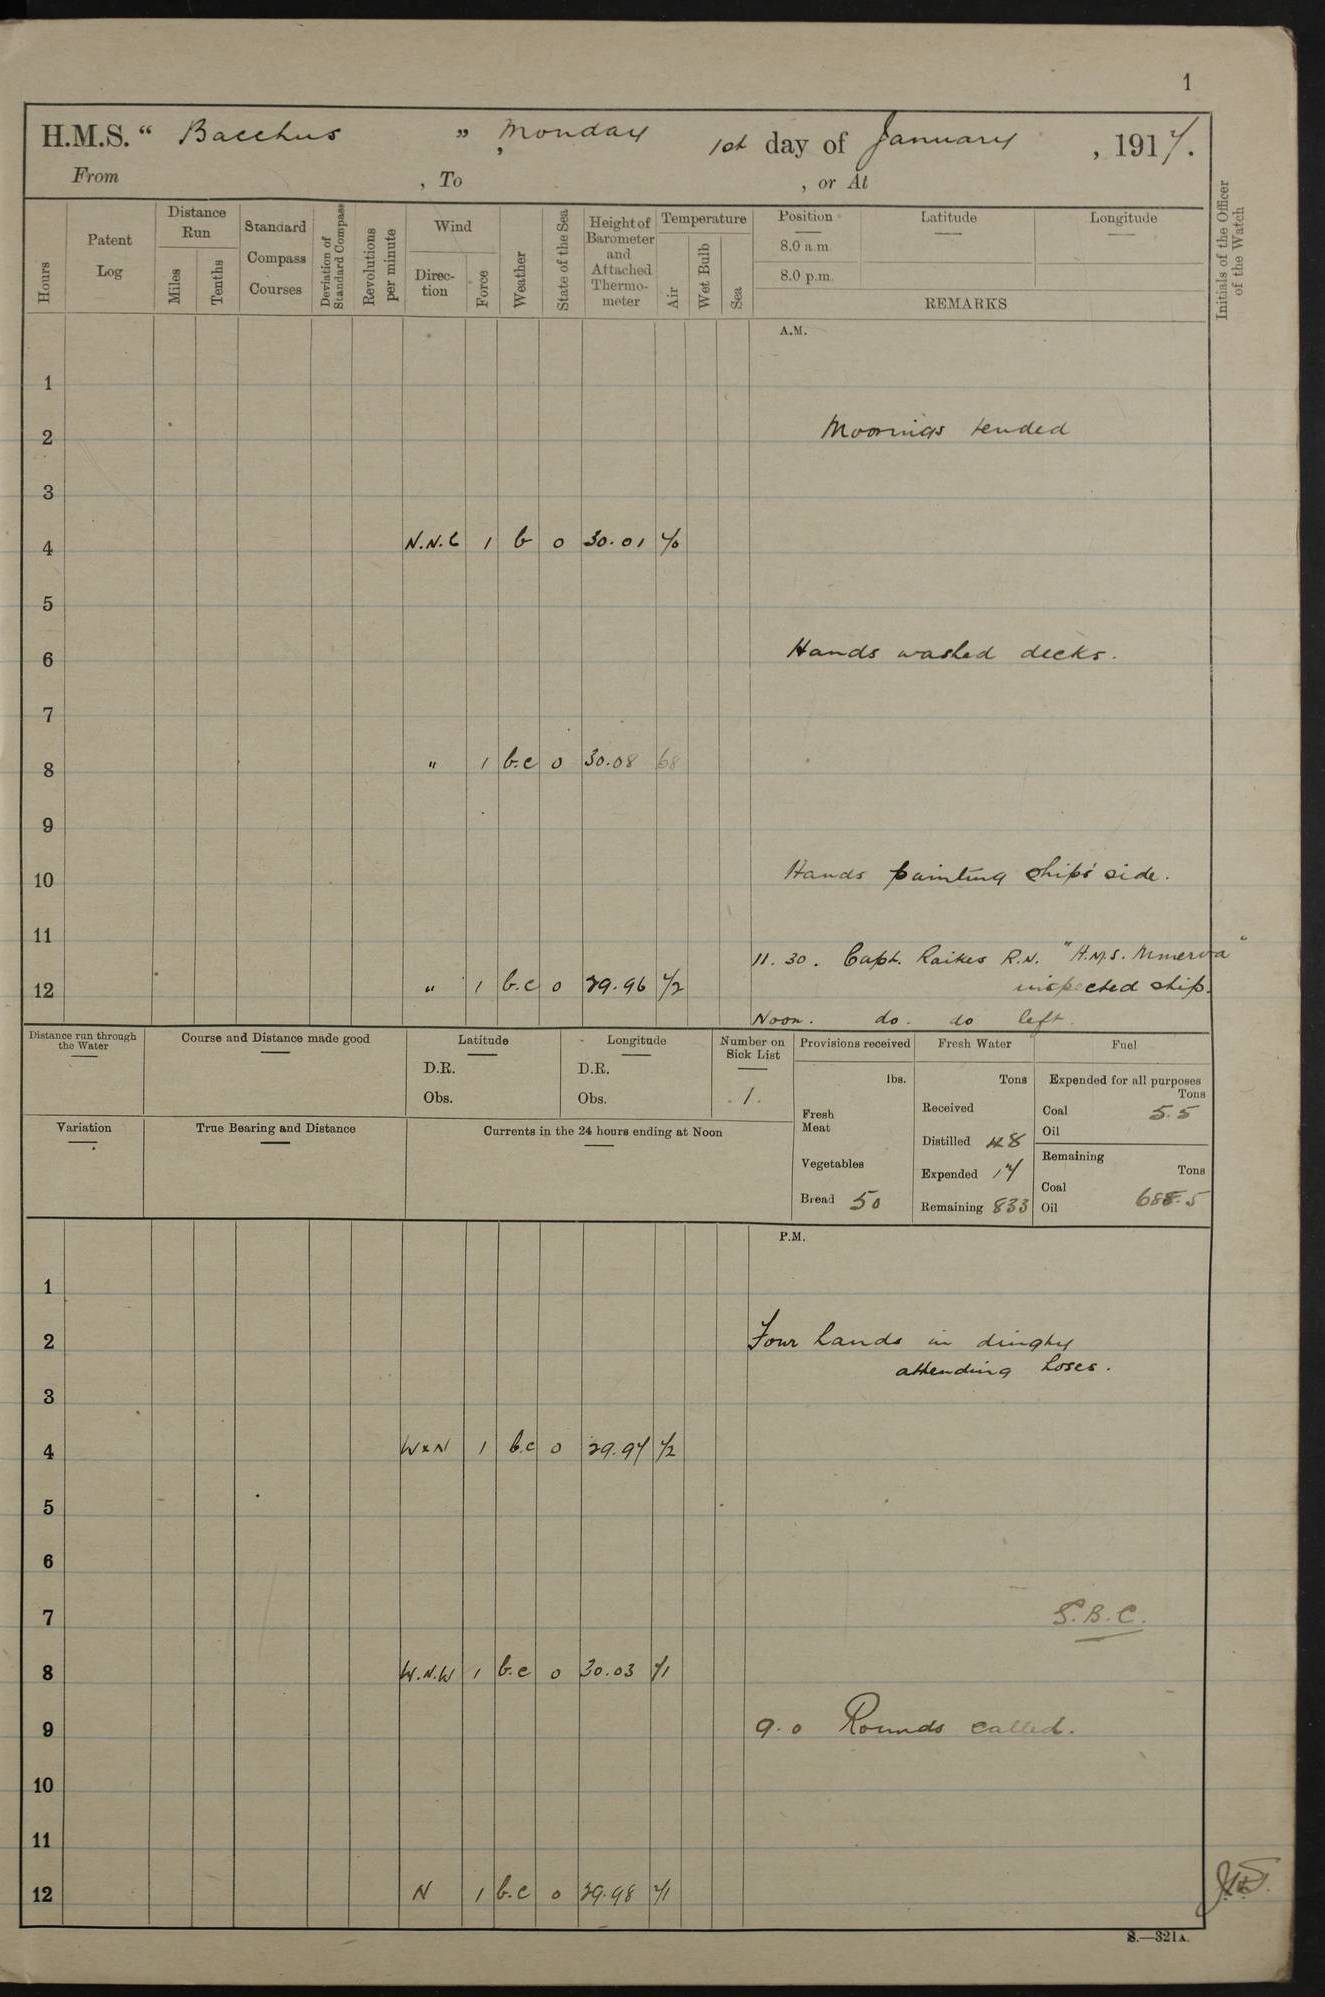 1
H.M.S. “ Bacchus ” , Monday 1st day of January , 1917.
From , To , or At
Hours
Patent Log
Distance Run
Miles
Tenths
Standard Compass Courses
Deviation of Standard Compass
Revolutions per minute
Wind
Direction
Force
Weather
State of the Sea
Height of Barometer and Attached Thermometer
Temperature
Air
Wet Bulb
Sea
Position
8.0 a.m.
8.0 p.m.
Latitude
Longitude
REMARKS
Initials of the Officer of the Watch
A.M.
1
2 Moorings tended
3
4 N.N.E 1 b 0 30.01 70
5
6 Hands washed decks.
7
8 " 1 b.c 0 30.08 68
9
10 Hands painting ships' side.
11
11. 30. Capt. Raikes R.N. "H.M.S. Minerva"
12 " 1 b.c 0 29.96 72 inspected ship.
Noon. do. do left
Distance run through the Water
Course and Distance made good
Latitude
D.R.
Obs.
Longitude
D.R.
Obs.
Number on Sick List
1.
Provisions received
lbs.
Fresh Meat
Vegetables
Bread 50
Fresh Water
Tons
Received
Distilled 48
Expended 17
Remaining 833
Fuel
Expended for all purposes
Tons
Coal 5.5
Oil
Remaining
Tons
Coal
Oil
Variation
True Bearing and Distance
Currents in the 24 hours ending at Noon
P.M.
1
2 Four hands in dinghy
attending hoses.
3
4 WxN 1 b.c 0 29.97 72
5
6
7 S.B.C.
8 W.N.W 1 b.c 0 30.03 71
9 9.0 Rounds called.
10
11
12 N 1 b.c 0 29.98 71
S.—321A.